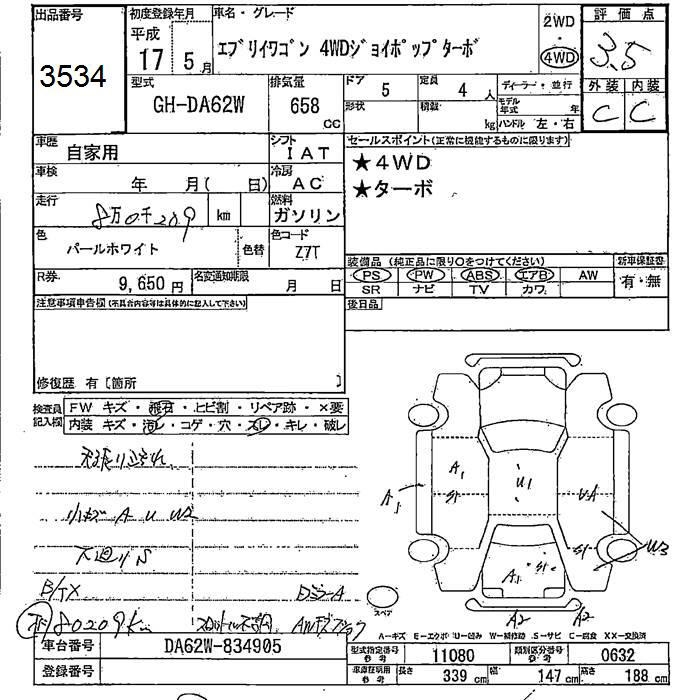 出品番号 初度登録年月 車名・グレード 2WD 評価点
3534 平成 17年 5月 エブリイワゴン 4WDジョイポップターボ 4WD 3.5
型式 排気量 ドア 5 定員 4人 ディーラー・並行 外装 内装
GH-DA62W 658cc 形状 積載 kg モデル年式 年 C C
ハンドル 左・右
車歴 自家用 シフト IAT セールスポイント(正常に機能するものに限ります)
車検 年 月( 日) 冷房 AC ★4WD
★ターボ
走行 8万0千209 km 燃料 ガソリン
色 パールホワイト 色替 色コード Z7T
装備品(純正品に限り○をつけてください) 新車保証書
R券 9,650円 名変通知期限 月 日 PS PW ABS エアB AW 有・無
SR ナビ TV カワ
注意事項申告欄(不具合内容等は具体的に記入して下さい) 後日品
修復歴 有〔箇所 〕
検査員記入欄 FW キズ・飛石・ヒビ割・リペア跡・×要
内装 キズ・汚レ・コゲ・穴・スレ・キレ・破レ
小キズ A U W2
下廻りS
B/TX DミラーA
80209km
A1 A1 S1 U1 UA S1 W3
A1 S1
スペア A2 A2
A-キズ E-エクボ U-凹み W-補修跡 S-サビ C-腐食 XX-交換済
車台番号 DA62W-834905 型式指定番号 参考 11080 類別区分番号 参考 0632
登録番号 車庫証明用 参考 長さ 339cm 幅 147cm 高さ 188cm